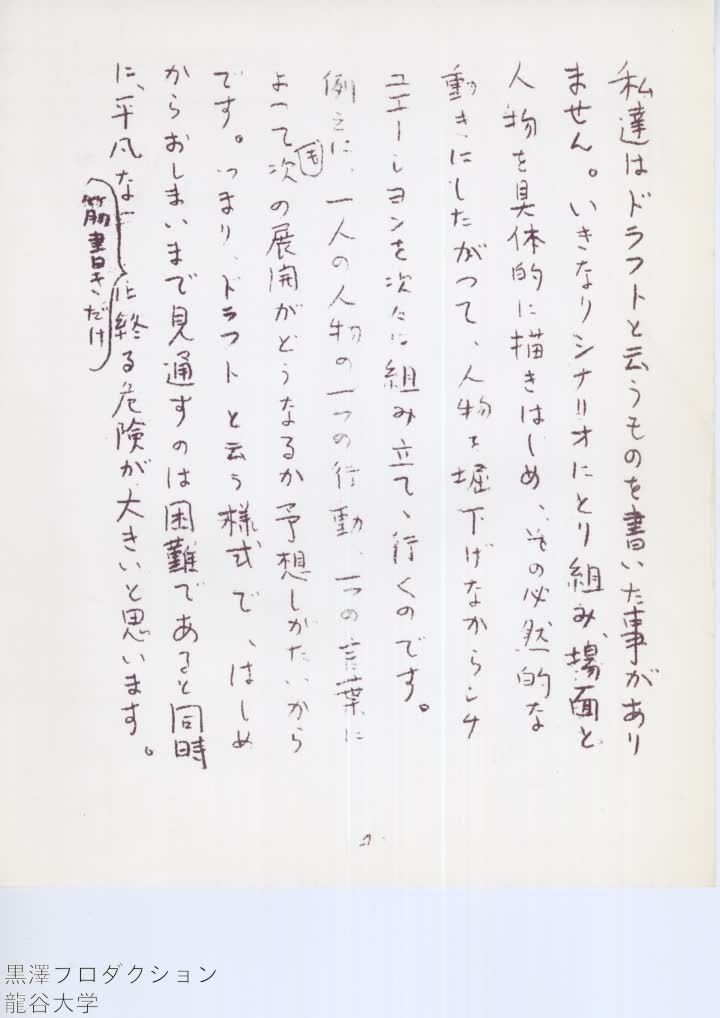 私達はドラフトと云うものを書いた事があり
ません。いきなりシナリオにとり組み、場面と
人物を具体的に描きはじめ、その必然的な
動きにしたがつて、人物を堀下げながらシチ
ュエーションを次々に組み立て、行くのです。
例えば、一人の人物の一つの行動、一つの言葉に
よつて次の展開がどうなるか予想しがたいから
です。つまり、ドラフトと云う様式で、はじめ
からおしまいまで見通すのは困難であると同時
に、平凡な筋書きだけに終る危険が大きいと思います。
黒澤プロダクション
龍谷大学